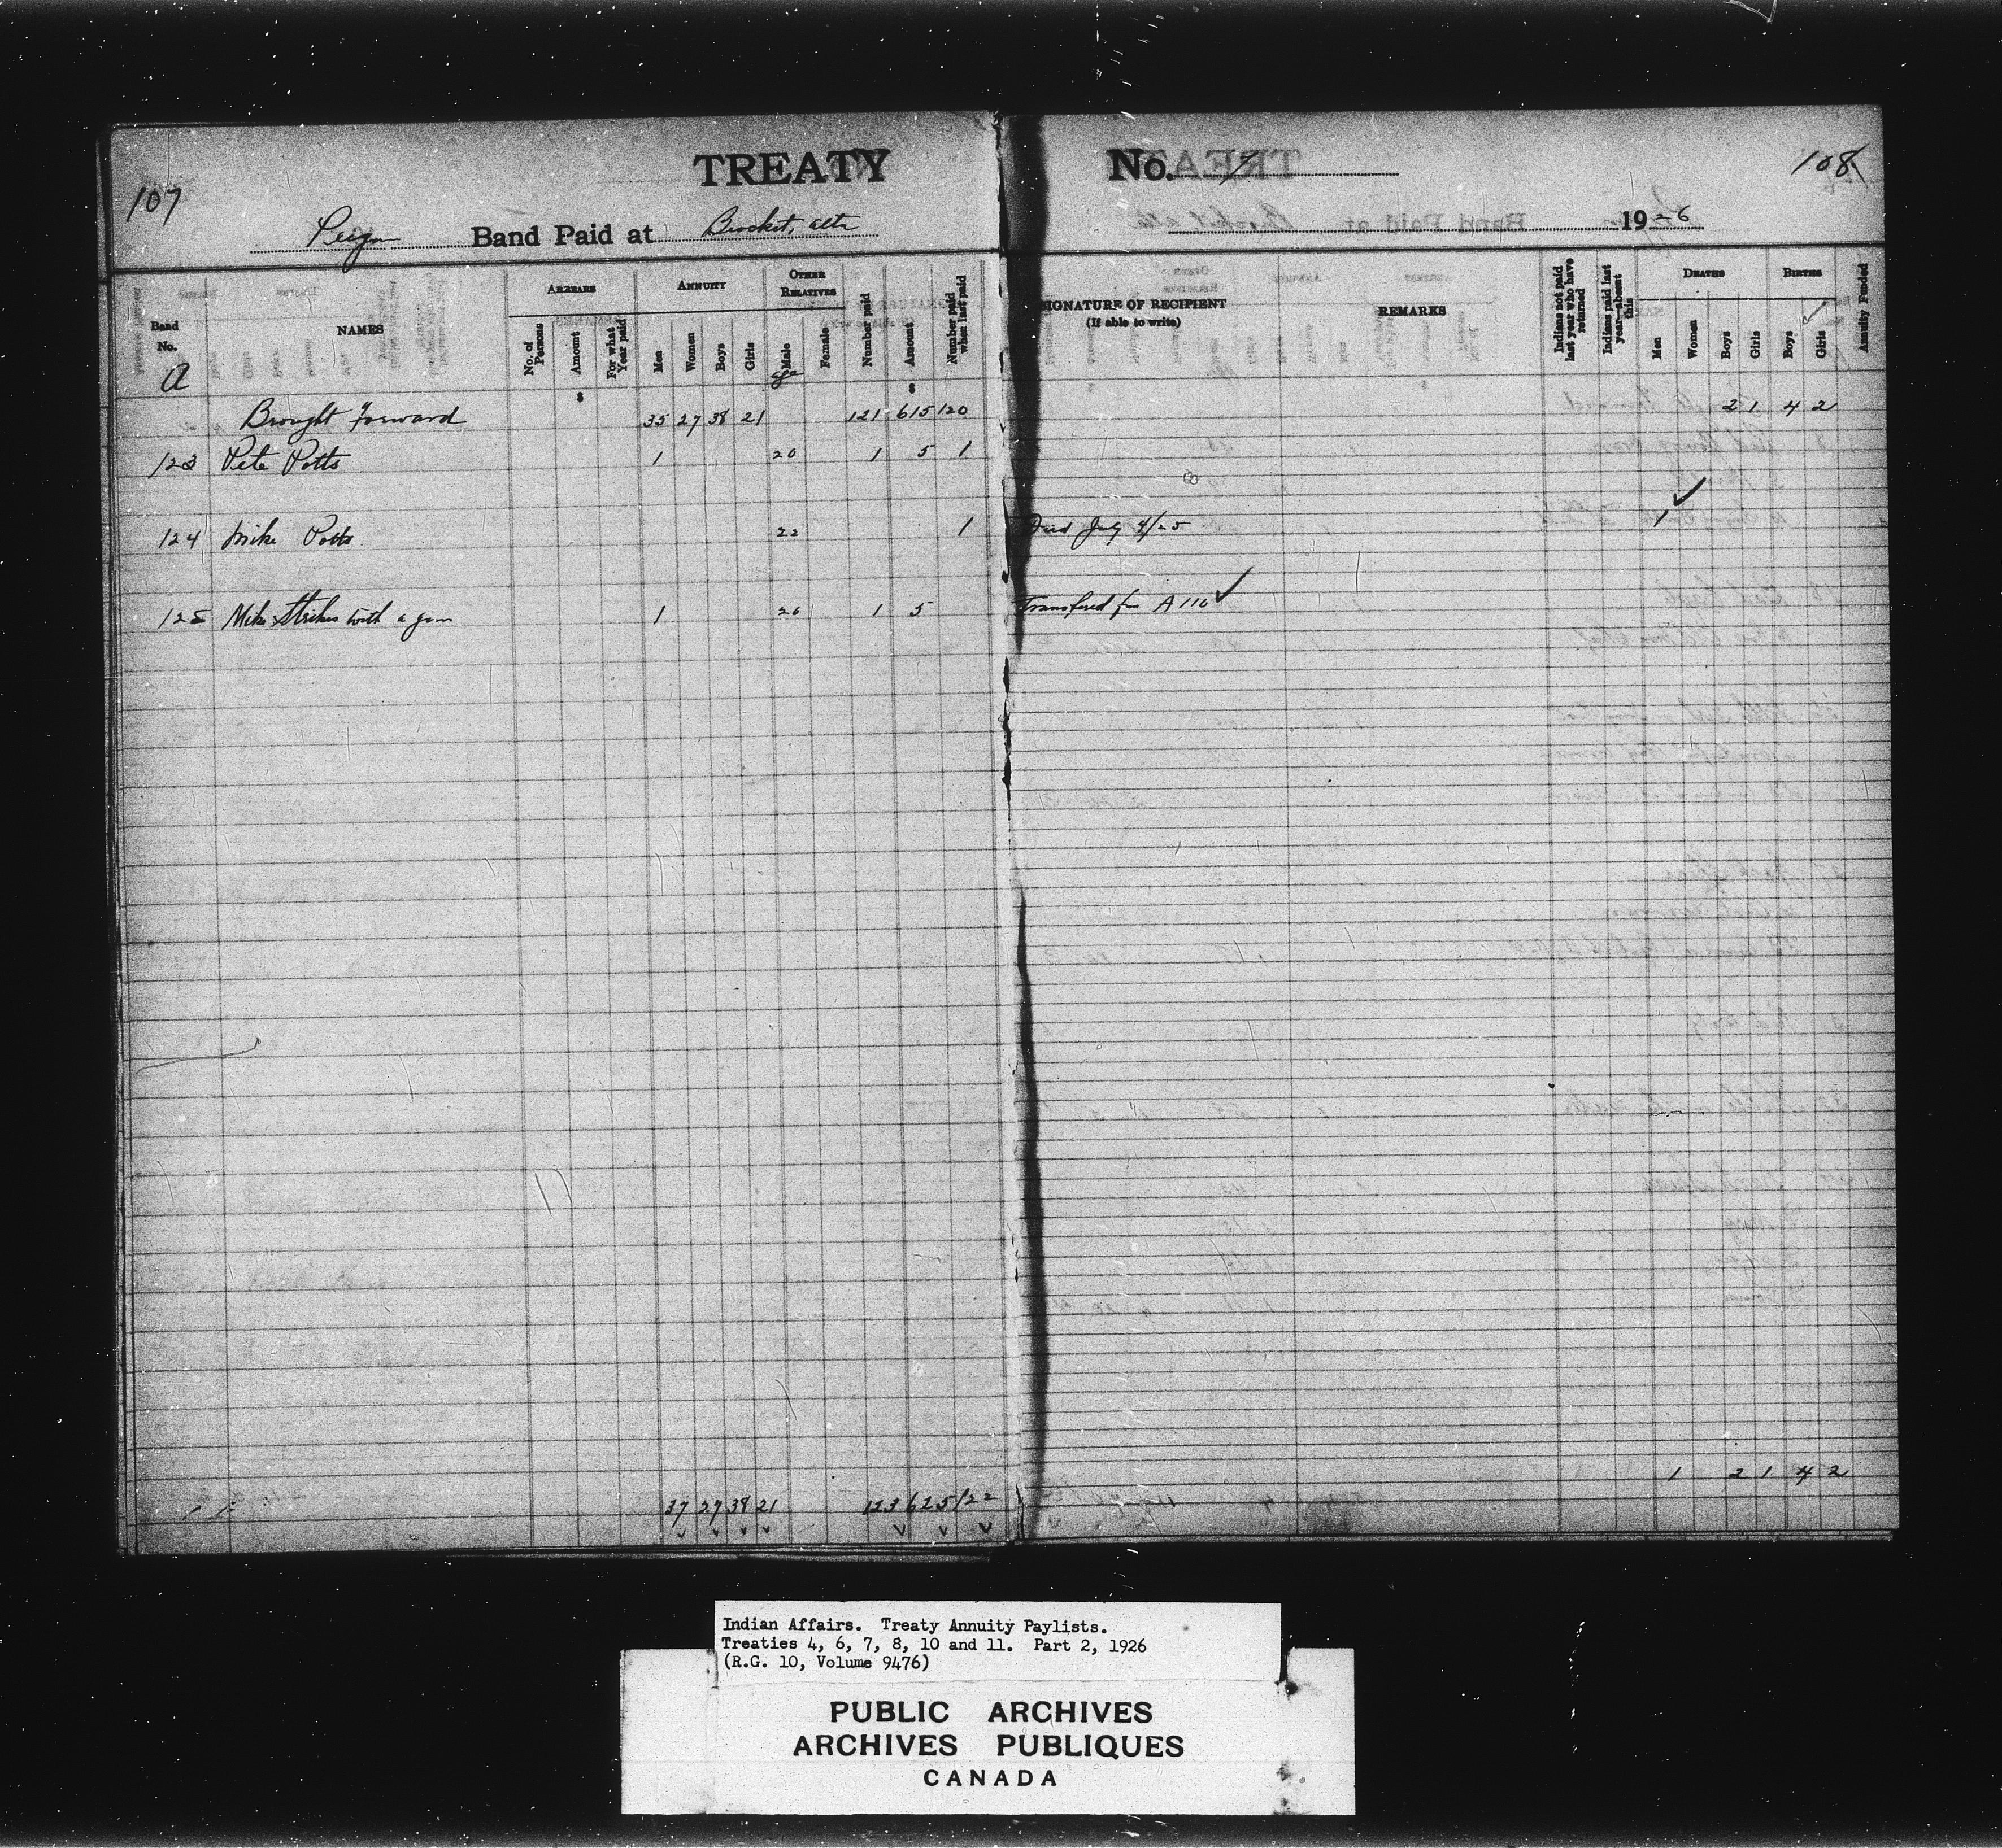 107
TREATY No. 7
108
Peigan Band Paid at Brocket, Alta
1926
Band No.
NAMES
ARREARS
No. of Persons
Amount
For what Year paid
ANNUITY
Men
Women
Boys
Girls
OTHER RELATIVES
Male
Female
Number paid
Amount
Number paid when last paid
SIGNATURE OF RECIPIENT
(If able to write)
REMARKS
Indians not paid last year who have returned
Indians paid last year—absent this
DEATHS
Men
Women
Boys
Girls
BIRTHS
Boys
Girls
Annuity Funded
A
age
$ $
Brought Forward 35 27 38 21 121 615 120 2 1 4 2
123 Pete Potts 1 20 1 5 1
124 Mike Potts 22 1 Died July 4/25 1
125 Mike Strikes with a gun 1 20 1 5 Transfered fm A 110
1 2 1 4 2
37 27 38 21 123 625 122
Indian Affairs. Treaty Annuity Paylists.
Treaties 4, 6, 7, 8, 10 and 11. Part 2, 1926
(R.G. 10, Volume 9476)
PUBLIC ARCHIVES
ARCHIVES PUBLIQUES
CANADA